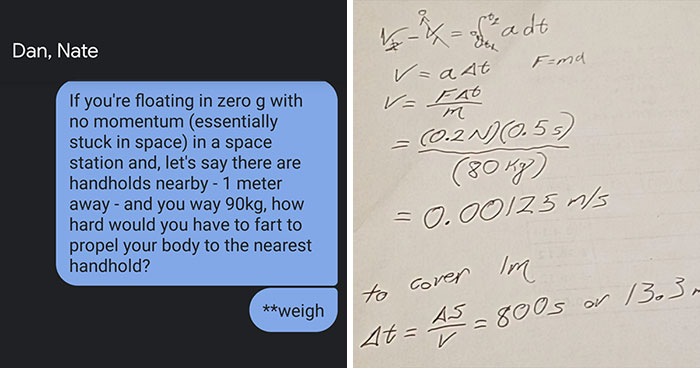 Dan, Nate
If you're floating in zero g with
no momentum (essentially
stuck in space) in a space
station and, let's say there are
handholds nearby - 1 meter
away - and you way 90kg, how
hard would you have to fart to
propel your body to the nearest
handhold?
**weigh
a dt
V = a Δt F=ma
V = FΔt
m
= (0.2 N)(0.5 s)
(80 kg)
= 0.00125 m/s
to cover 1m
Δt = ΔS
V
= 800s or 13.3